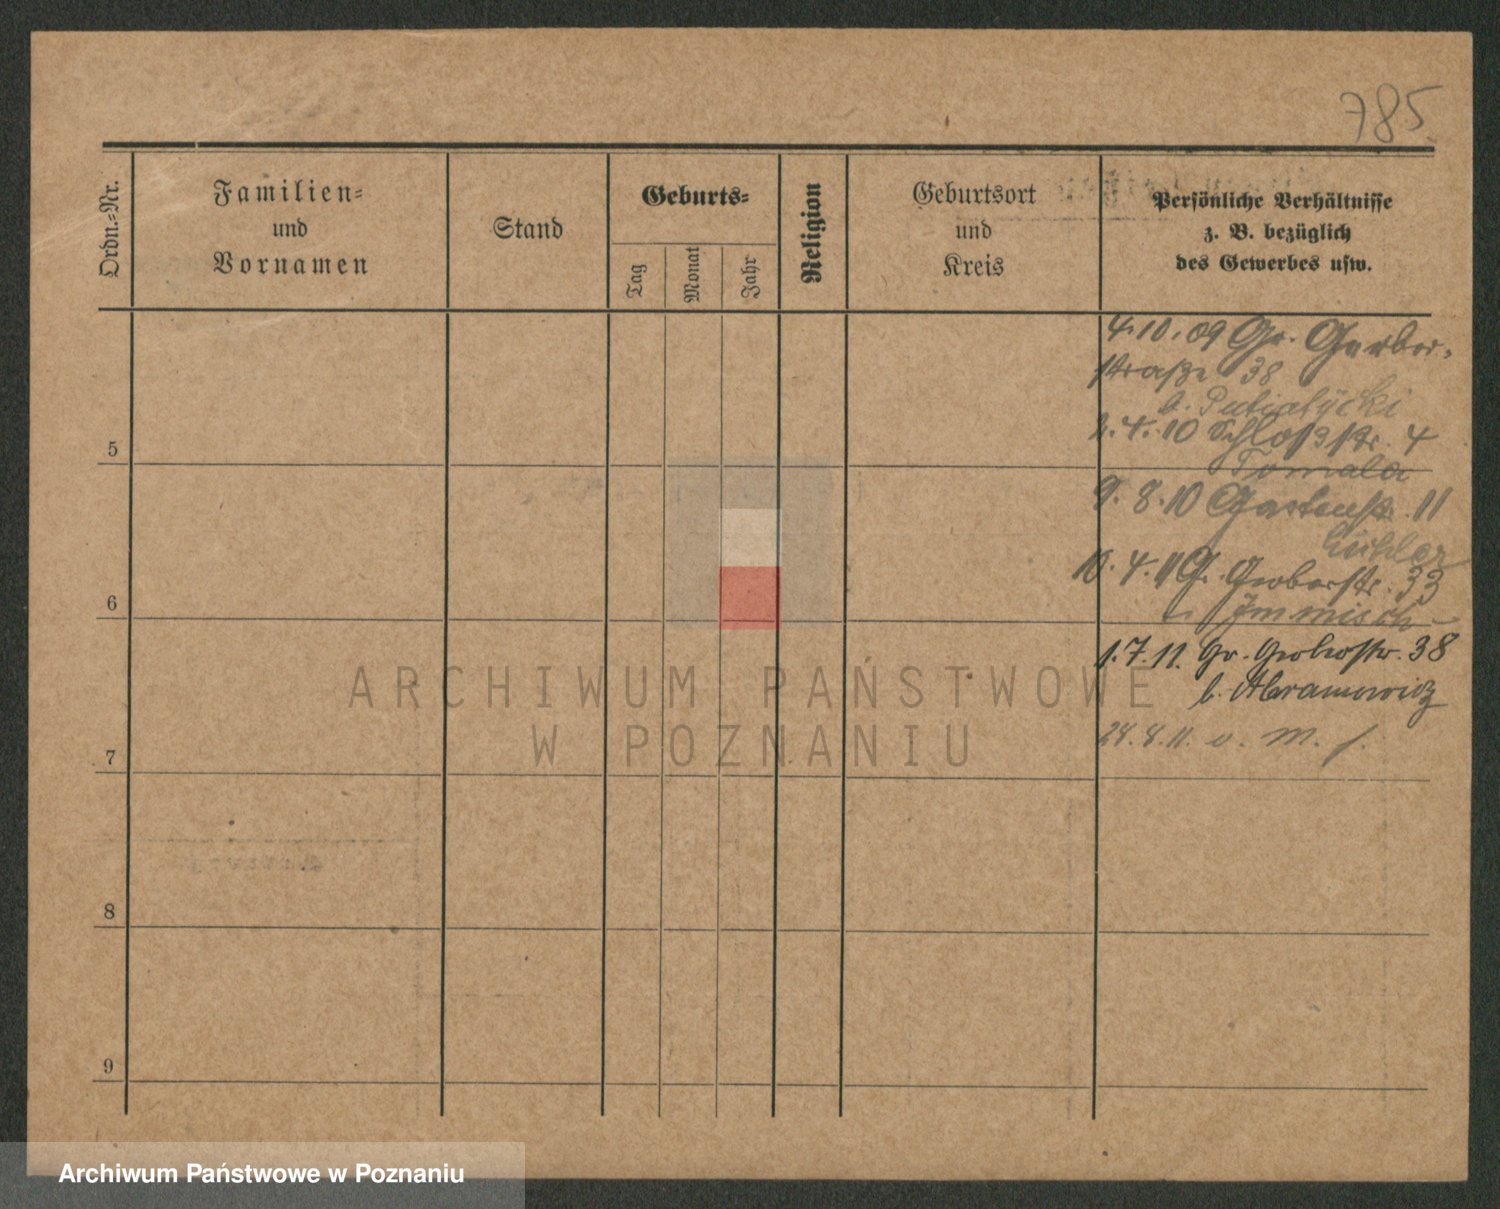 785
Ordn.=Nr.
Familien=
und
Vornamen
Stand
Geburts=
Tag
Monat
Jahr
Religion
Geburtsort
und
Kreis
Persönliche Verhältnisse
z. B. bezüglich
des Gewerbes usw.
4.10.09 Gr. Gerber-
straße 38
b.
2.4.10 Schloßstr. 4
Tomala
9.8.10 Gartenstr. 11
10.4.11 Gr. Gerberstr. 33
Immisch
1.7.11. Gr. Gerberstr. 38
b. Abramowicz
5
6
7
8
9
ARCHIWUM PAŃSTWOWE
W POZNANIU
Archiwum Państwowe w Poznaniu